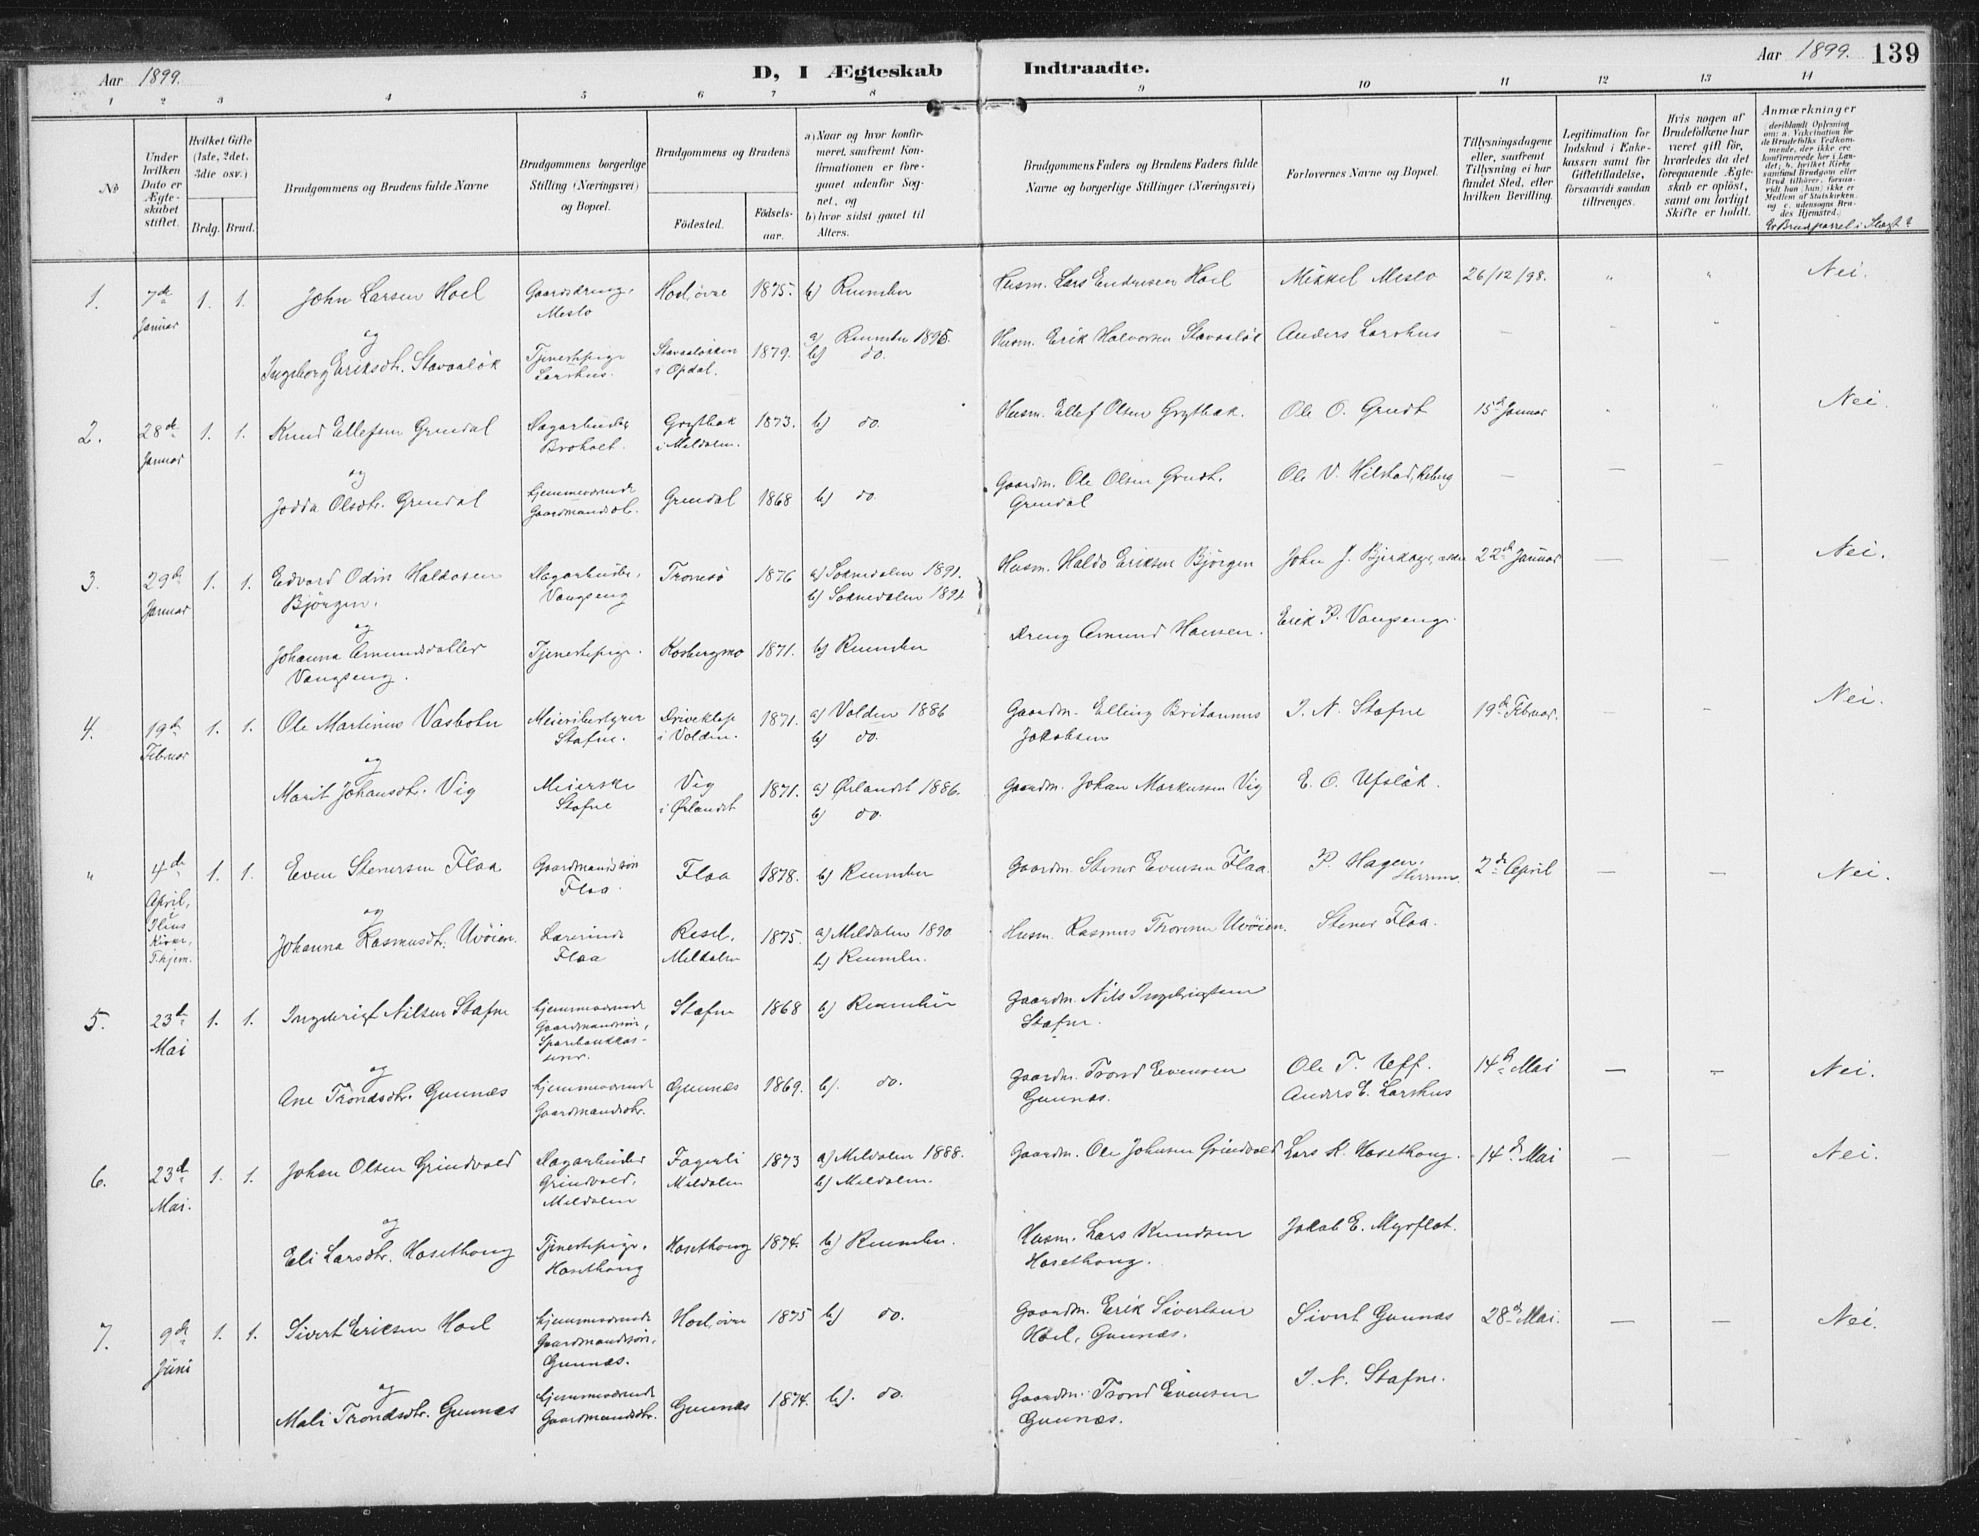 Aar 1899.
D, I Ægteskab Indtraadte.
Aar 1899. 139
1 2 3 4 5 6 7 8 9 10 11 12 13 14
No
Under hvilken Dato er Ægteskabet stiftet.
Hvilket Gifte (1ste, 2det, 3die osv.)
Brdg. Brud.
Brudgommens og Brudens fulde Navne
Brudgommens borgerlige Stilling (Næringsvei) og Bopæl.
Brudgommens og Brudens
Fødested. Fødselsaar.
a) Naar og hvor konfirmeret, saafremt Konfirmationen er foregaaet udenfor Sognet, og
b) hvor sidst gaaet til Alters.
Brudgommens Faders og Brudens Faders fulde Navne og borgerlige Stillinger (Næringsvei)
Forlovernes Navne og Bopæl.
Tillysningsdagene eller, saafremt Tillysning ei har fundet Sted, efter hvilken Bevilling.
Legitimation for Indskud i Enkekassen samt for Giftetilladelse, forsaavidt saadan tiltrænges.
Hvis nogen af Brudefolkene har været gift før, hvorledes da det foregaaende Ægteskab er opløst, samt om lovligt Skifte er holdt.
Anmærkninger
Er Brudparret i Slægt?
1. 7de Januar 1. 1. John Larsen Hoel Gaardsdreng, Meslo Hoel, øvre 1875. b) Rennebu Husm. Lars Endresen Hoel Mikkel Meslo 26/12/98. " " Nei.
og
Ingeborg Eriksdtr. Stavaaløk Tjenestepige Larshus. Stavaaløkken i Opdal. 1879. a) Rennebu 1895. b) do. Husm. Erik Halvorsen Stavaaløk Anders Larshus —
2. 28de Januar 1. 1. Knud Ellefsen Grindal Dagarbeider Broholt. Grytbak i Meldalen. 1873. b) do. Husm. Ellef Olsen Grytbak. Ole O. Grudt 15de Januar Nei.
og
Jodda Olsdtr. Grindal hjemmeværende Gaardmandsdtr. Grindal 1868 b) do. Gaardm. Ole Olsen Grudt, Grindal Ole V. Hilstad, — — —
3. 29de Januar 1. 1. Edvard Odin Haldosen Bjørgen. Dagarbeider, Vangseng Tromsø 1876 a) Soknedalen 1891. b) Soknedalen 1891 Husm. Haldo Eriksen Bjørgen John J. 22de Januar — — Nei.
og
Johanna Amundsdatter Vangseng. Tjenestepige. Kosbergmo 1871. b) Rennebu Dreng Amund Hansen. Erik P. Vangseng.
4. 19de Februar 1. 1. Ole Martinus Vasbotn Meieribestyrer Stafne. Driveklep i Volden. 1871. a) Volden 1886 b) do. Gaardm. Elling Britanius Jakobsen I. N. Stafne 19de Februar. — — Nei.
og
Marit Johansdtr. Vig Meierske Stafne Vig i Ørlandet 1871. a) Ørlandet 1886. b) do. Gaardm. Johan Markussen Vig E. O. Ufsløk.
" 4de April, Ilens Kirke, T.hjem. 1. 1. Even Stenersen Flaa Gaardmandssøn Flaa. Flaa 1878. b) Rennebu Gaardm. Stener Evensen Flaa. P. Hagen, Herrem. 2de April — — Nei.
og
Johanna Rasmusdtr. Uvøien. Lærerinde Flaa Resel, Meldalen 1875. a) Meldalen 1890 b) Rennebu. Husm. Rasmus Thoresen Uvøien. Stener Flaa.
5. 23de Mai 1. 1. Ingebrigt Nilsen Stafne hjemmeværende Gaardmandssøn, Sparebankkasserer. Stafne 1868 b) Rennebu Gaardm. Nils Ingebrigtsen Stafne.
og
Ane Trondsdtr. Gunnæs hjemmeværende Gaardmandsdtr. Gunnæs 1869. b). do. Gaardm. Trond Evensen Gunnæs. Ole T. Uff. Anders E. Larshus 14de Mai — — Nei.
6. 23de Mai. 1. 1. Johan Olsen Grindvold Dagarbeider Grindvold, Meldalen Fagerli Meldalen 1873 a) Meldalen 1888. b) Meldalen. Gaardm. Ole Johnsen Grindvold Lars K. Hosethong. 14de Mai — — Nei.
og
Eli Larsdtr. Hosethong Tjenestepige, Hosethong Hosethong 1874. b) Rennebu. Husm. Lars Knudsen Hosethong. Jakob E. Myrflot.
7. 9de Juni 1. 1. Sivert Eriksen Hoel hjemmeværende Gaardmandssøn, Gunnæs. Hoel, øvre 1875 b) do. Gaardm. Erik Sivertsen Hoel, Gunnæs. Sivert Gunnæs 28de Mai. — — Nei.
og
Mali Trondsdtr. Gunnæs hjemmeværende Gaardmandsdtr. Gunnæs 1874. b). do. Gaardm. Trond Evensen Gunnæs. I. N. Stafne.